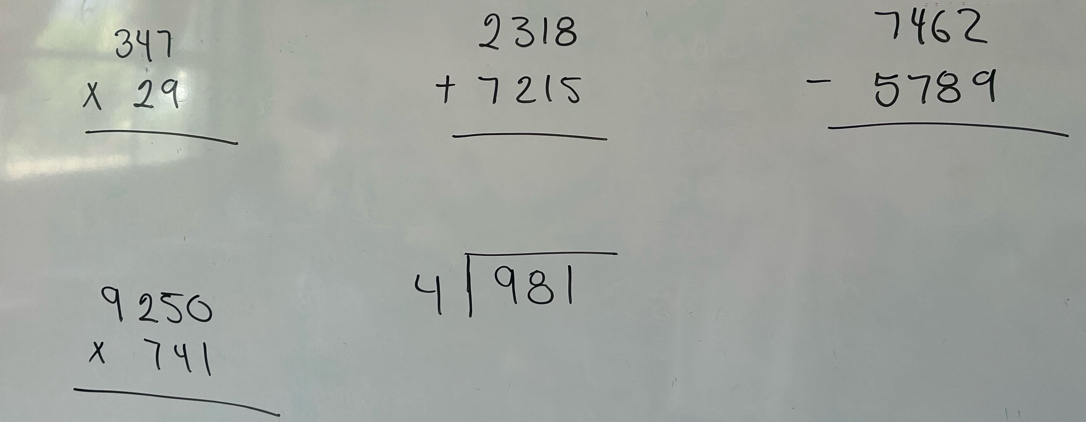 347
x 29
2318
+ 7215
7462
- 5789
9250
x 741
4 981